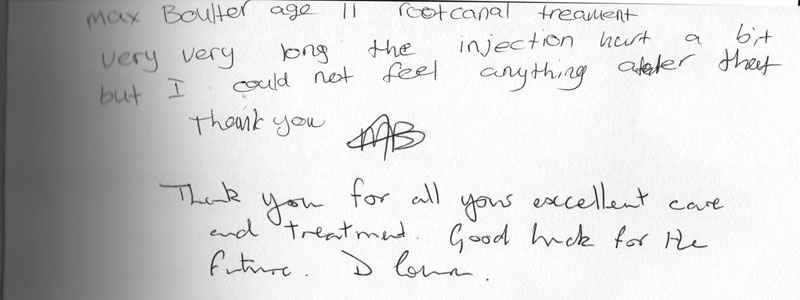 max Boulter age 11 rootcanal treament
very very long the injection hurt a bit
but I could not feel anything after that
Thank you MB
Thank you for all yours excellent care
and treatment. Good luck for the
future. D